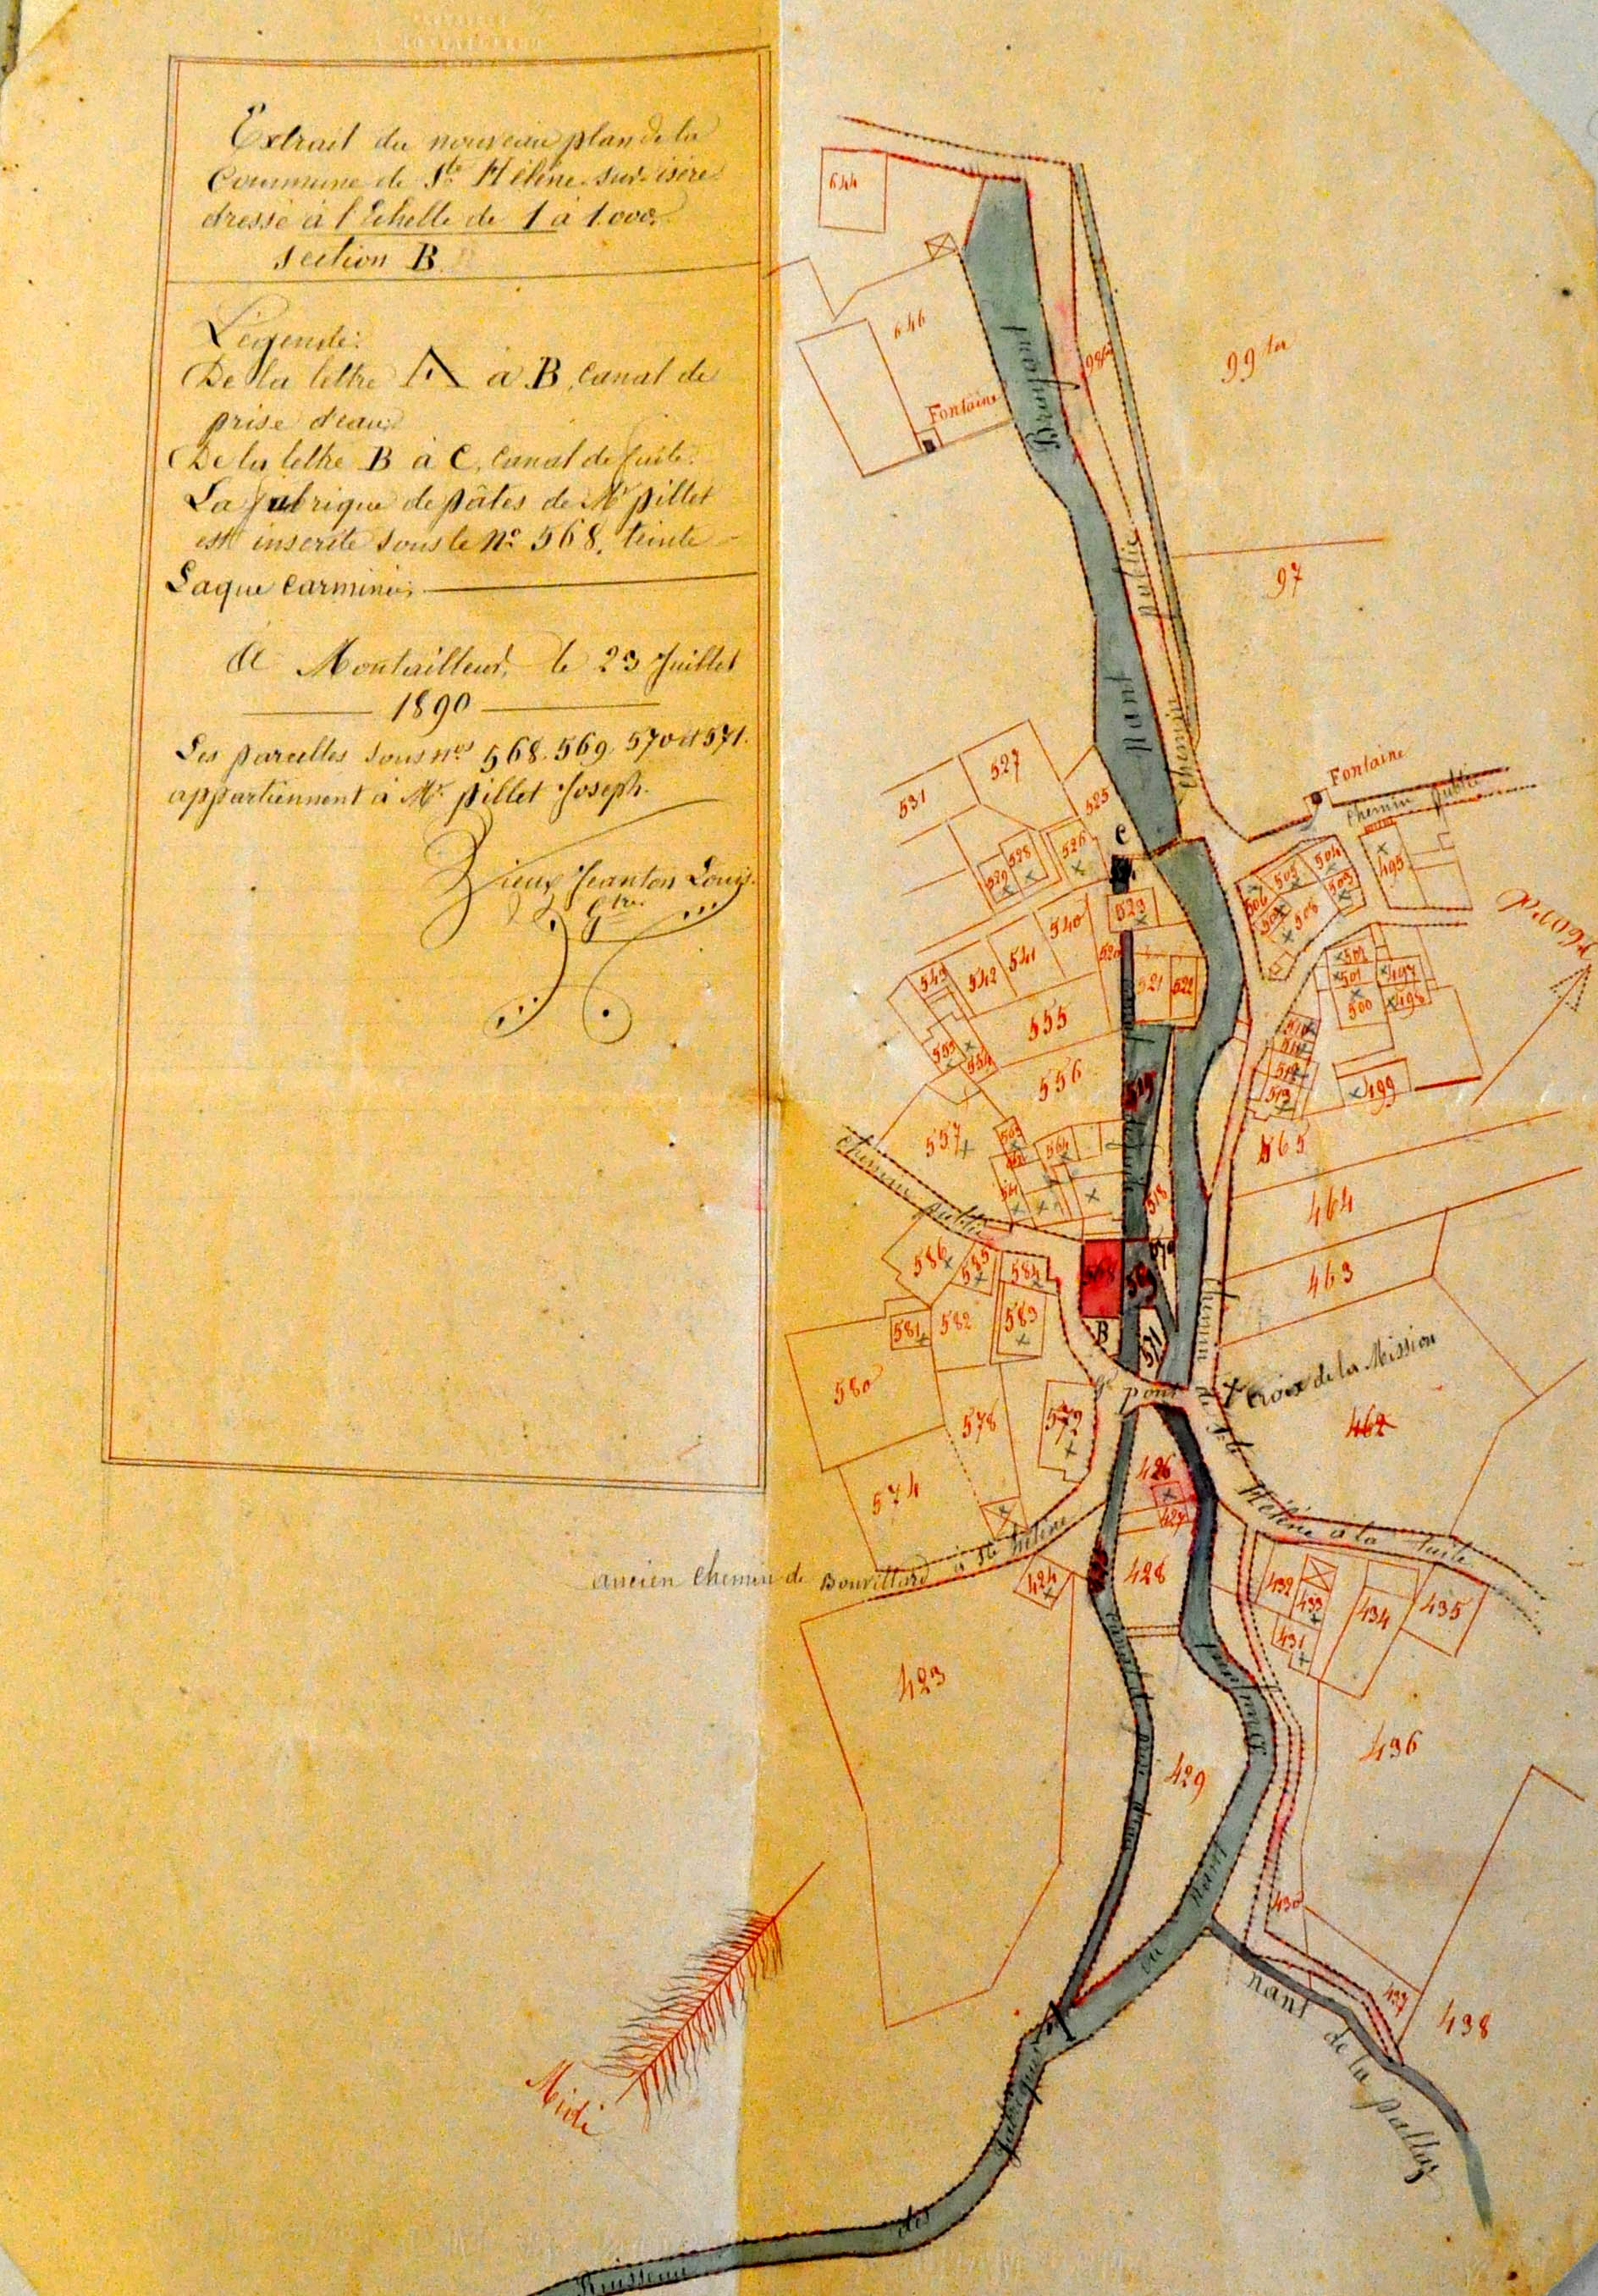 Extrait du nouveau plan de la
Commune de Ste Hélène-sur-isère
dressé à l'Echelle de 1 à 1.000.
section B
Légende:
De la lettre A à B, canal de
prise d'eau.
De la lettre B à C, canal de fuite.
La fabrique de pâtes de Mr pillet
est inscrite sous le No 568, teinte
Laque carminée.
à Montailleur, le 23 Juillet
1890
Les parcelles sous nos 568. 569. 570 et 571.
appartiennent à Mr pillet Joseph.
Louis
Gtre
644
646
Fontaine
99 ter
nant
chemin public
97
Fontaine
chemin public
531
527
525
528
529
526
C
523
540
541
542
543
520
521
522
555
556
553
554
557
chemin public
564
518
519
504
503
495
508
502
501
500
497
498
499
513
465
464
463
462
568
569
570
571
B
586
585
584
583
582
581
580
578
579
574
Gd pont
chemin de Ste Hélène à la
Croix de la Mission
426
427
428
424
ancien chemin de Bonvillard à Ste Hélène
423
429
432
433
431
434
435
436
430
437
438
nant
ou
A
nant de la pallaz
Midi
Ruisseau des fabriques